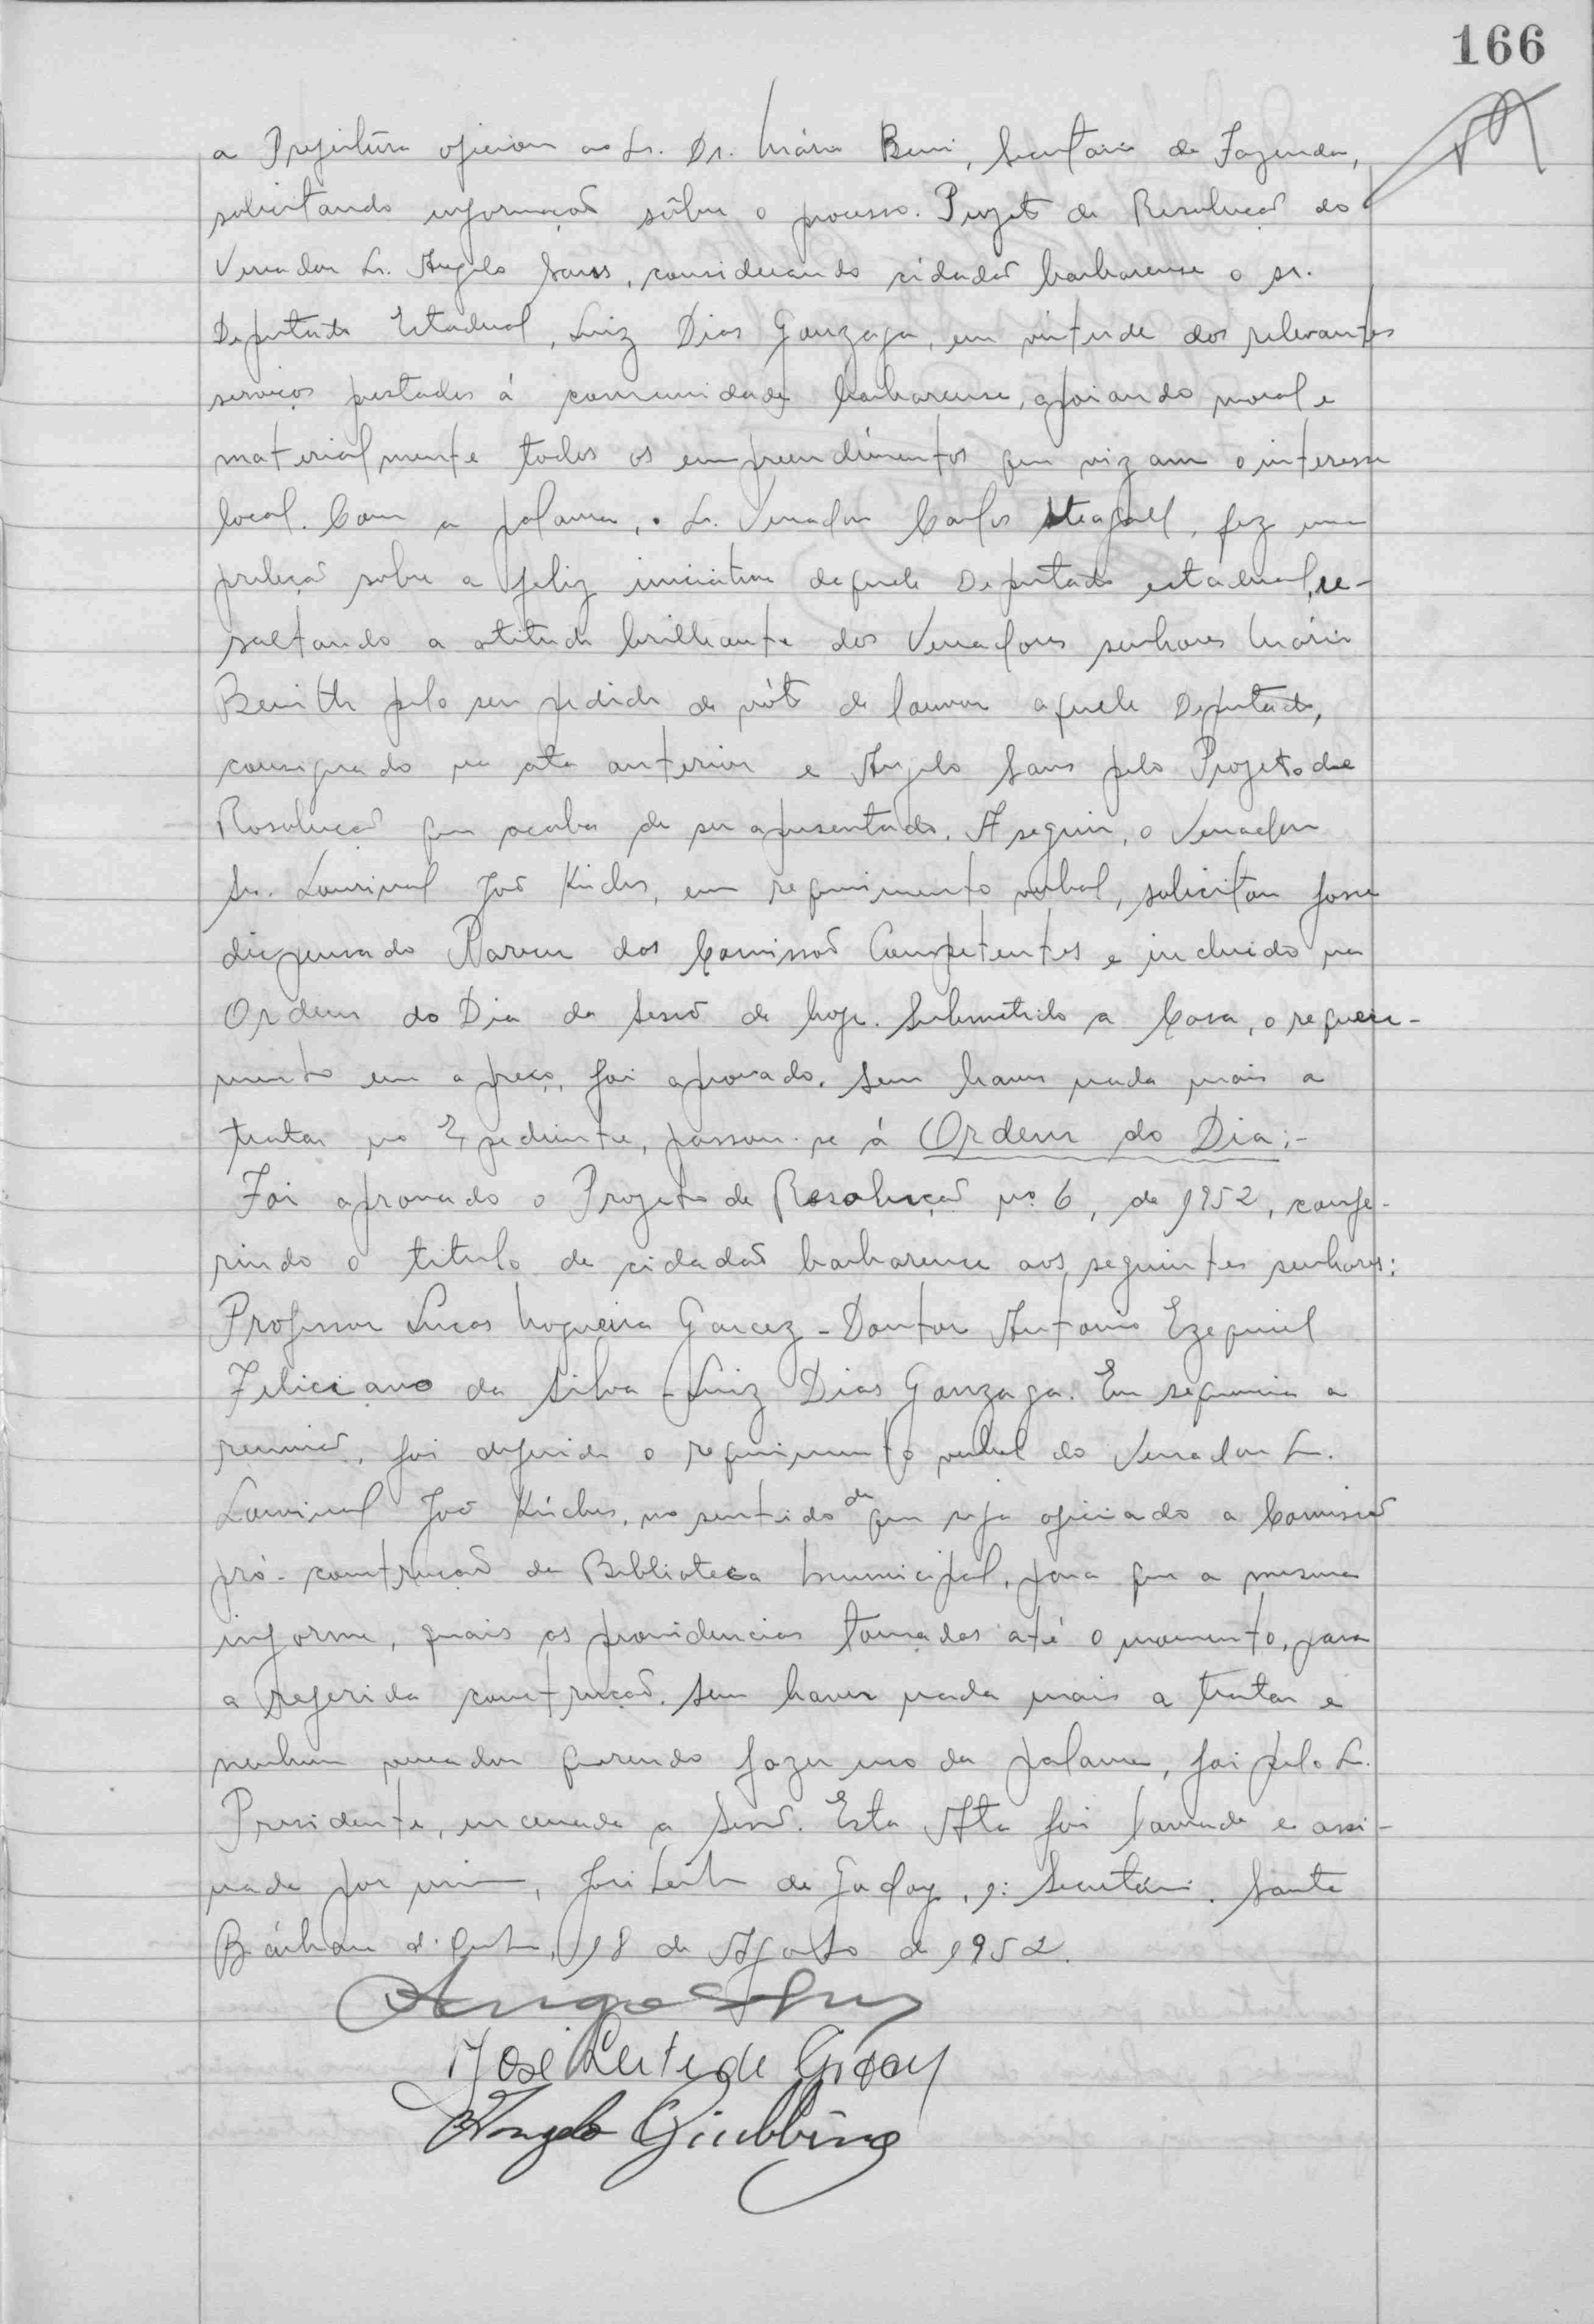 166
a Prefeitura oficiou ao Sr. Dr. Mário Beni, Secretário da Fazenda,
solicitando informação sôbre o processo. Projeto de Resolução do
Vereador Sr. Angelo Sans, considerando cidadão barbarense o sr.
Deputado Estadual, Luiz Dias Gonzaga, em virtude dos relevantes
serviços prestados á comunidade barbarense, apoiando moral e
materialmente todos os empreendimentos que vizam o interesse
local. Com a palavra, o Sr. Vereador Carlos Steagall, fez uma
preleção sobre a feliz iniciativa daquele Deputado estadual, re-
saltando a atitude brilhante dos Vereadores senhores Mário
pelo seu pedido de vóto de louvor aquele Deputado,
consignado na ata anterior e Angelo Sans pelo Projeto de
Resolução que acaba de ser apresentado. A seguir, o Vereador
Sr. Lourival João Küchs, em requerimento verbal, solicitou fosse
dispensado Parecer das Comissões Competentes e incluido na
Ordem do Dia da Sessão de hoje. Submetido a Casa, o requeri-
mento em apreço, foi aprovado. Sem haver nada mais a
tratar no Expediente, passou-se á Ordem do Dia:-
Foi aprovado o Projeto de Resolução nº 6, de 1952, confe-
rindo o titulo de cidadão barbarense aos seguintes senhores:
Professor Lucas Nogueira Garcez - Doutor Antonio Ezequiel
Feliciano da Silva - Luiz Dias Gonzaga. Em sequencia a
reunião, foi deferido o requerimento verbal do Vereador Sr.
Lourival João Küchs, no sentido de que seja oficiado a Comissão
pró-construção da Biblioteca Municipal, para que a mesma
informe, quais as providencias tomadas até o momento, para
a referida construção. Sem haver nada mais a tratar e
nenhum vereador querendo fazer uso da palavra, foi pelo Sr.
Presidente, encerrada a Sessão. Esta Ata foi lavrada e assi-
nada por mim, José Leite de Godoy, 1º Secretário. Santa
Bárbara d'Oeste, 18 de Agosto de 1952.
Angelo Sans
José Leite de Godoy
Angelo Giubbina